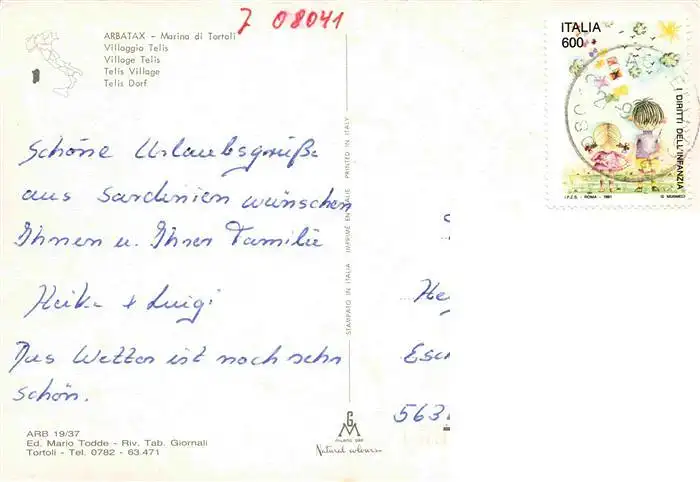 7 08041
ARBATAX - Marina di Tortoli
Villaggio Telis
Village Telis
Telis Village
Telis Dorf
Schöne Urlaubsgrüße
aus Sardinien wünschen
Ihnen u. Ihrer Familie
Heike + Luigi
Das Wetter ist noch sehr
schön.
ARB 19/37
Ed. Mario Todde - Riv. Tab. Giornali
Tortoli - Tel. 0782 - 63.471
STAMPATO IN ITALIA IMPRIMÉ EN ITALIE PRINTED IN ITALY
GM
MILANO
Natural colours
ITALIA
600
I DIRITTI DELL'INFANZIA
I.P.Z.S. - ROMA - 1991
Esc
563